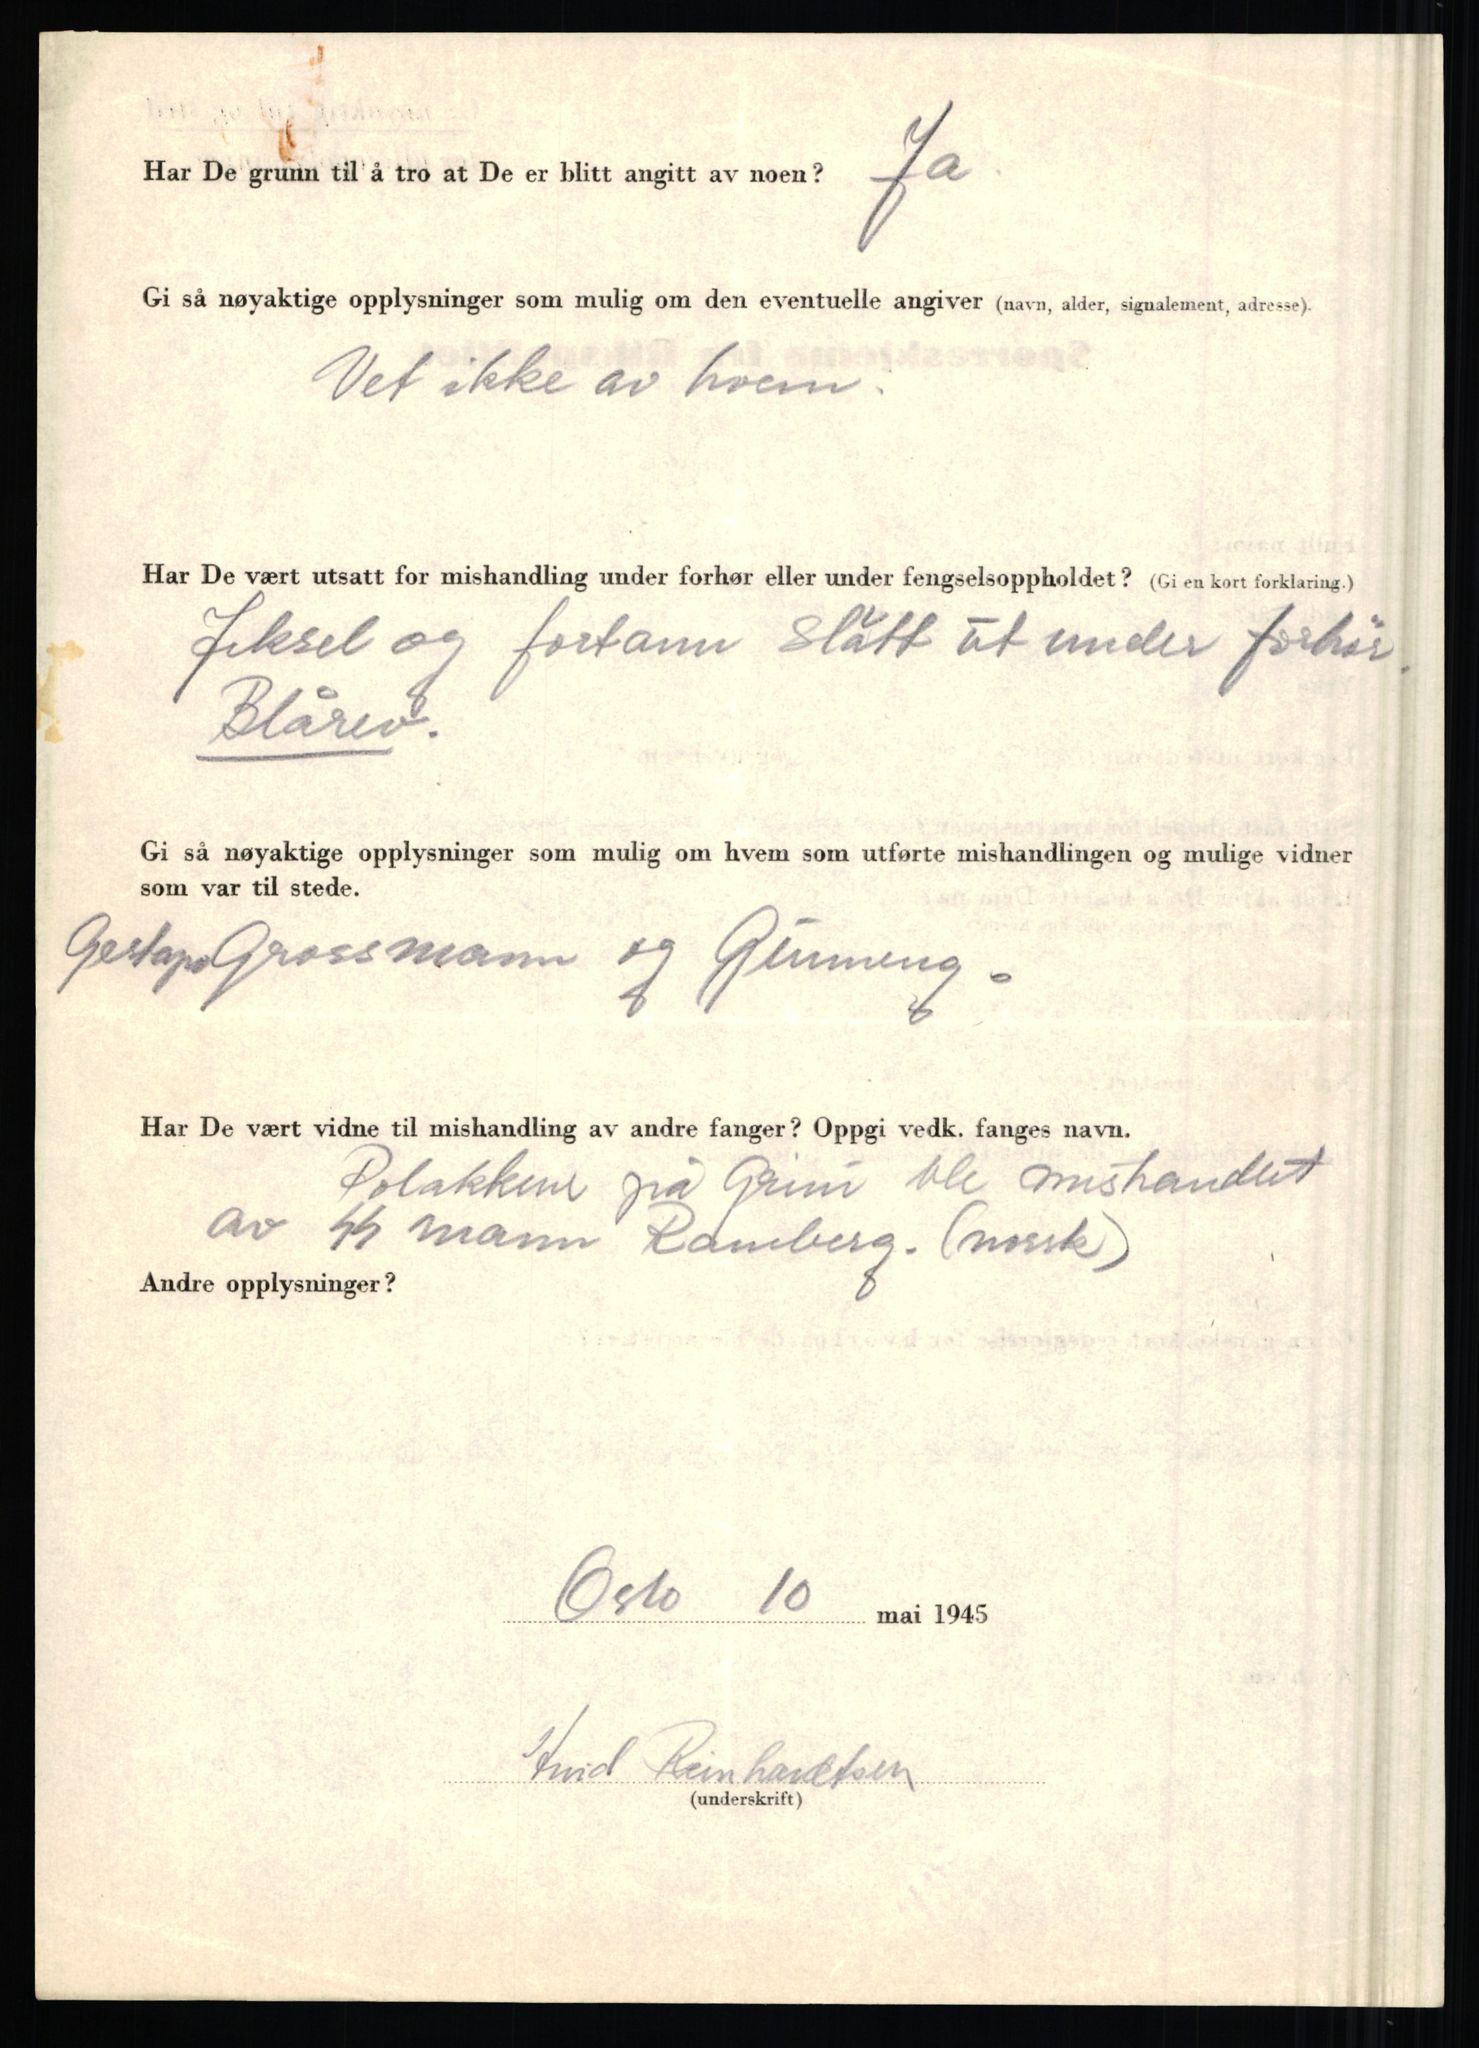 Har De grunn til å tro at De er blitt angitt av noen? Ja.
Gi så nøyaktige opplysninger som mulig om den eventuelle angiver (navn, alder, signalement, adresse).
Vet ikke av hvem.
Har De vært utsatt for mishandling under forhør eller under fengselsoppholdet? (Gi en kort forklaring.)
Jeksel og fortann slått ut under forhør.
Blårev.
Gi så nøyaktige opplysninger som mulig om hvem som utførte mishandlingen og mulige vidner
som var til stede.
Gestapo Grossmann og
Har De vært vidne til mishandling av andre fanger? Oppgi vedk. fanges navn.
Polakkene på Grini ble mishandlet
av SS mann Ramberg. (norsk)
Andre opplysninger?
Oslo 10 mai 1945
Reinhardtsen
(underskrift)